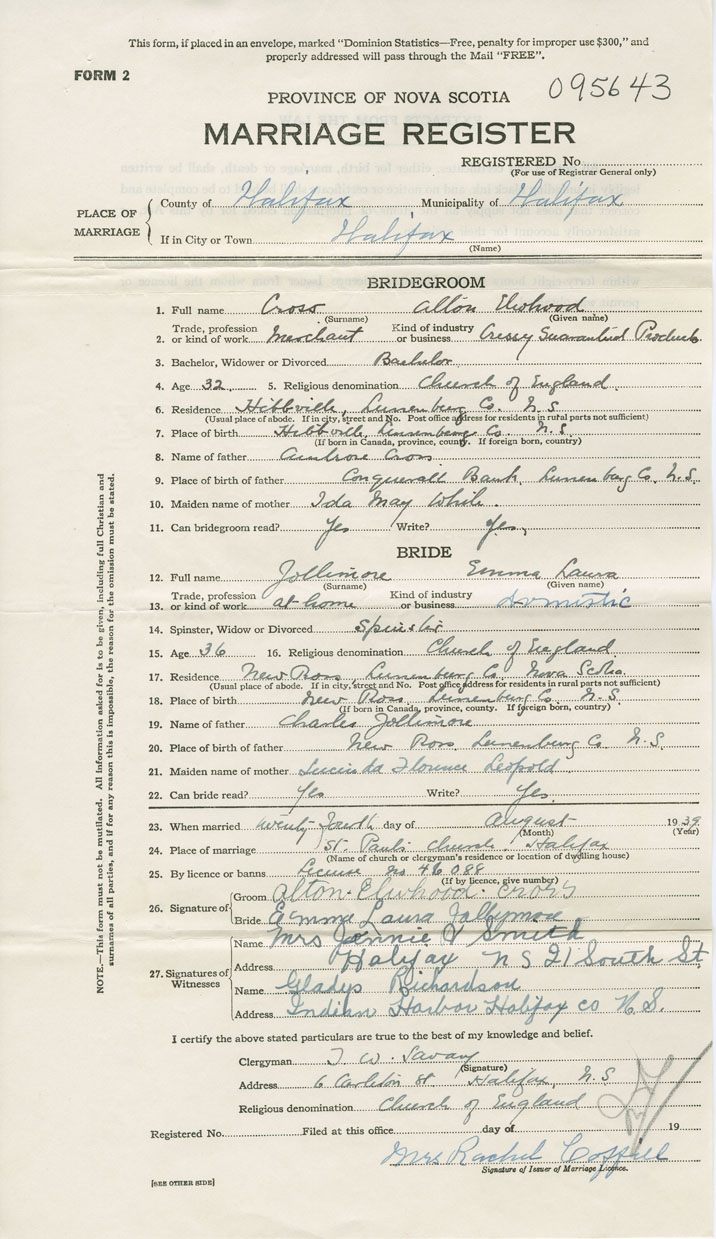 This form, if placed in an envelope, marked "Dominion Statistics—Free, penalty for improper use $300," and
properly addressed will pass through the Mail "FREE".
FORM 2
095643
PROVINCE OF NOVA SCOTIA
MARRIAGE REGISTER
REGISTERED No.
(For use of Registrar General only)
PLACE OF MARRIAGE
County of Halifax Municipality of Halifax
If in City or Town Halifax
(Name)
BRIDEGROOM
1. Full name Cross Alton Elwhood
(Surname) (Given name)
2. Trade, profession or kind of work Merchant Kind of industry or business Guaranteed Products
3. Bachelor, Widower or Divorced Bachelor
4. Age 32 5. Religious denomination Church of England
6. Residence Hibbville, Lunenburg Co. N.S.
(Usual place of abode. If in city, street and No. Post office address for residents in rural parts not sufficient)
7. Place of birth Hibbville, Lunenburg Co. N.S.
(If born in Canada, province, county. If foreign born, country)
8. Name of father Ambrose Cross
9. Place of birth of father Conquerall Bank, Lunenburg Co. N.S.
10. Maiden name of mother Ida May While
11. Can bridegroom read? Yes Write? Yes
BRIDE
12. Full name Jollimore Emma Laura
(Surname) (Given name)
13. Trade, profession or kind of work at home Kind of industry or business domestic
14. Spinster, Widow or Divorced Spinster
15. Age 36 16. Religious denomination Church of England
17. Residence New Ross, Lunenburg Co. Nova Scotia
(Usual place of abode. If in city, street and No. Post office address for residents in rural parts not sufficient)
18. Place of birth New Ross, Lunenburg Co. N.S.
(If born in Canada, province, county. If foreign born, country)
19. Name of father Charles Jollimore
20. Place of birth of father New Ross, Lunenburg Co N.S.
21. Maiden name of mother Lucinda Florence Leopold
22. Can bride read? Yes Write? Yes
23. When married twenty fourth day of August 1939
(Month) (Year)
24. Place of marriage St. Pauls Church Halifax
(Name of church or clergyman's residence or location of dwelling house)
25. By licence or banns License No 46088
(If by licence, give number)
26. Signature of Groom Alton Elwhood Cross
Bride Emma Laura Jollymore
27. Signatures of Witnesses
Name Mrs Jennie V Smith
Address Halifax N S 21 South St
Name Gladys Richardson
Address Indian Harbor Halifax co N.S.
I certify the above stated particulars are true to the best of my knowledge and belief.
Clergyman T. W. Savary
(Signature)
Address 6 Carleton St Halifax, N.S.
Religious denomination Church of England
Registered No. Filed at this office day of 19
Mrs Rachel Coffill
Signature of Issuer of Marriage Licence.
[SEE OTHER SIDE]
NOTE.—This form must not be mutilated. All information asked for is to be given, including full Christian and
surnames of all parties, and if for any reason this is impossible, the reason for the omission must be stated.